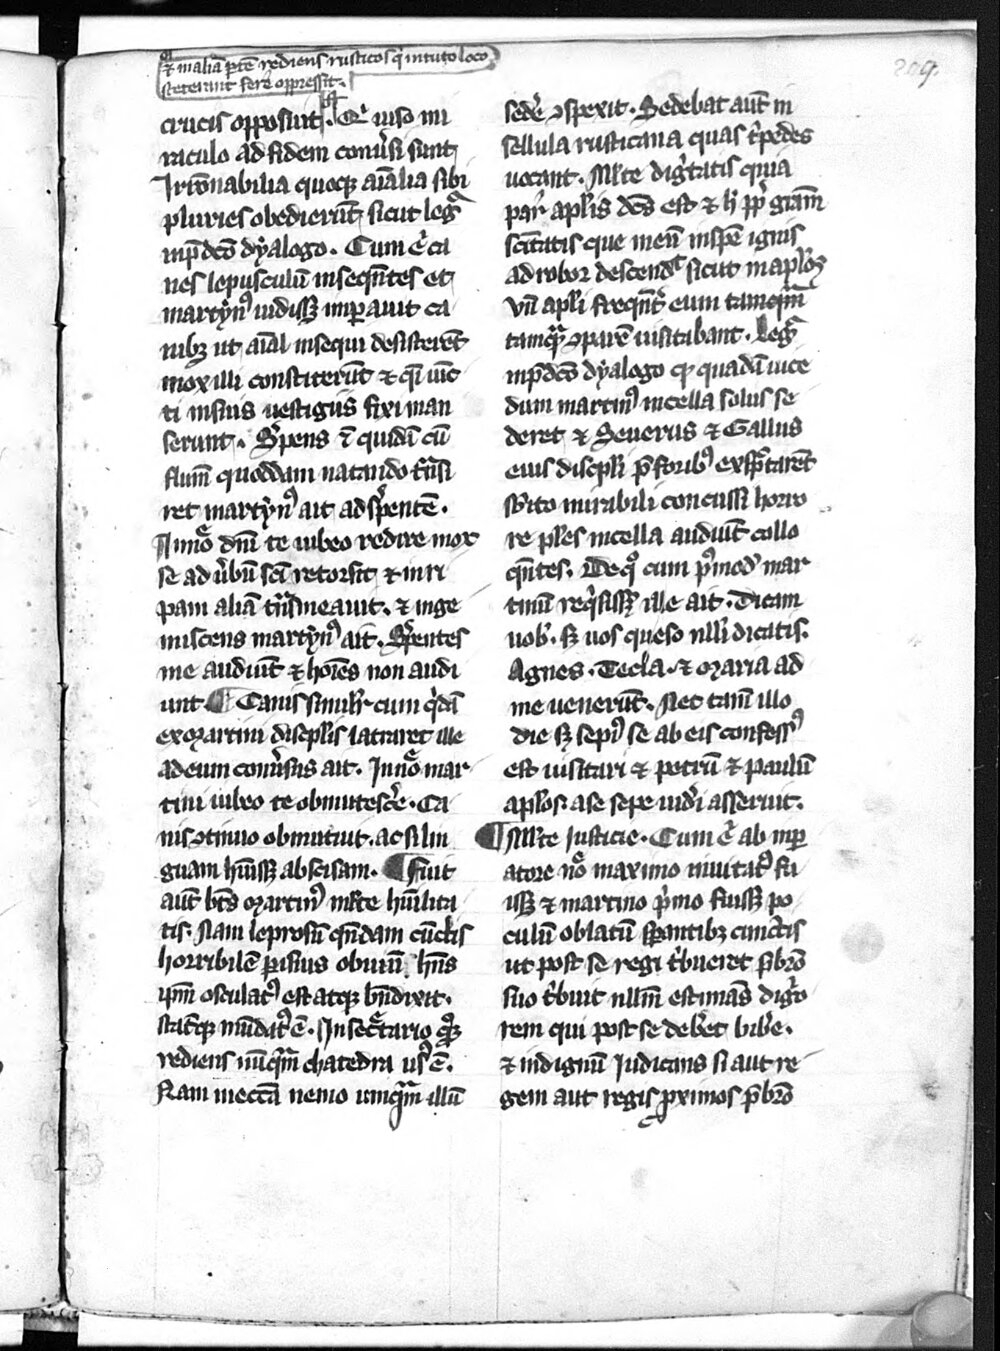 ⁊ ī aliā ꝑtē rediens rusticos q̓ in tuto loco
steterant fere oppressit.
209.
crucis opposuit. Qͥ uiso mi
raculo ad fidem conuersi sunt
Irrōnabilia quoqꝫ aīalia sibi
pluries obedierūt, sicut legͥ
in p̄dcō dyalogo. Cum .n. ca
nes lepusculū inseqūtes et
martynꝰ uidissꝫ imperauit ca
nibꝫ ut aīal insequi desisterēt
mox illi constiterūt ⁊ qͣi uīc
ti in suis uestigiis fixi man
serunt. Sꝑpens .n. quidā cū
flum̄ quoddam natando trāsi
ret martynꝰ ait ad sꝑpentē.
In noīe dn̄i te iubeo redire mox
se ad ūbū sc̄i retorsit ⁊ in ri
pam aliā trāsmeauit. ⁊ inge
miscens martynꝰ ait. Sꝑpentes
me audiūt ⁊ hoīes non audi
unt ¶ Canis simil̓r cum qͥdā
ex martini discip̄lis latraret ille
ad eum conūsus ait. In noīe mar
tini iubeo te obmutescere. Ca
nis ɔtinuo obmutuit. ac si lin
guam h̄uissꝫ abscisam. ¶ fuit
aūt btūs martinꝰ ml̓te hūilita
tis. Nam leprosū qn̄dam cūctis
horribilē parisius obuiū hn̄s
ip̄m osculatꝰ est atqꝫ bn̄dixit.
statīqꝫ mūdatꝰ ē. In secretario
rediens nūqͣm chatedra usꝰ ē.
Nam in eccā nemo unqͣm illū
sedē ɔspexit. Sedebat aūt in
sellula rusticana quas tͥpedes
uocant. Ml̓te digͥtatis quia
par apl̓is dc̄s est ⁊ h̓ ꝓpͥ grām
sc̄itatis que in eū in spē ignis
ad robor descendͭ sicut in apl̓os
Vn̄ apl̓i freqn̄t eum tamqͣm
tamqͣm ɔparē uisitabant. Legͥ
in p̄dcō dyalogo qꝫ quadā uice
dum martinꝰ in cella solus se
deret ⁊ Seuerus ⁊ Gallus
eius discipl̓i p̄ foribꝰ exspctarēt
sͣbito mirabili concussi horro
re pl̓es in cella audiūt collo
qn̄tes. De qͦ cum pͥmodͫ mar
tinū reqͥsissꝫ ille ait. Dicam
uob̓. sꝫ uos queso nl̓li dicatis.
Agnes. Tecla. ⁊ maria ad
me uenerūt. Nec tam̄ illo
die sꝫ sepiꝰ se ab eis confessꝰ
est uisitari ⁊ petrū ⁊ paulū
apl̓os a se sepe uideri asseruit.
¶ Ml̓te iusticie. Cum .n. ab imꝑ
atore nōe maximo inuitatꝰ fu
issꝫ ⁊ martino pͥmo fuissꝫ po
culū oblatū sperantibꝫ cunctis
ut post se regi tͥbueret p̄sbrō
suo tͥbuit nll̄m estimās digͥo
rem qui post se deberet bibere.
⁊ indignū iudicans si aut re
gem aut regis proximos p̄sbrō